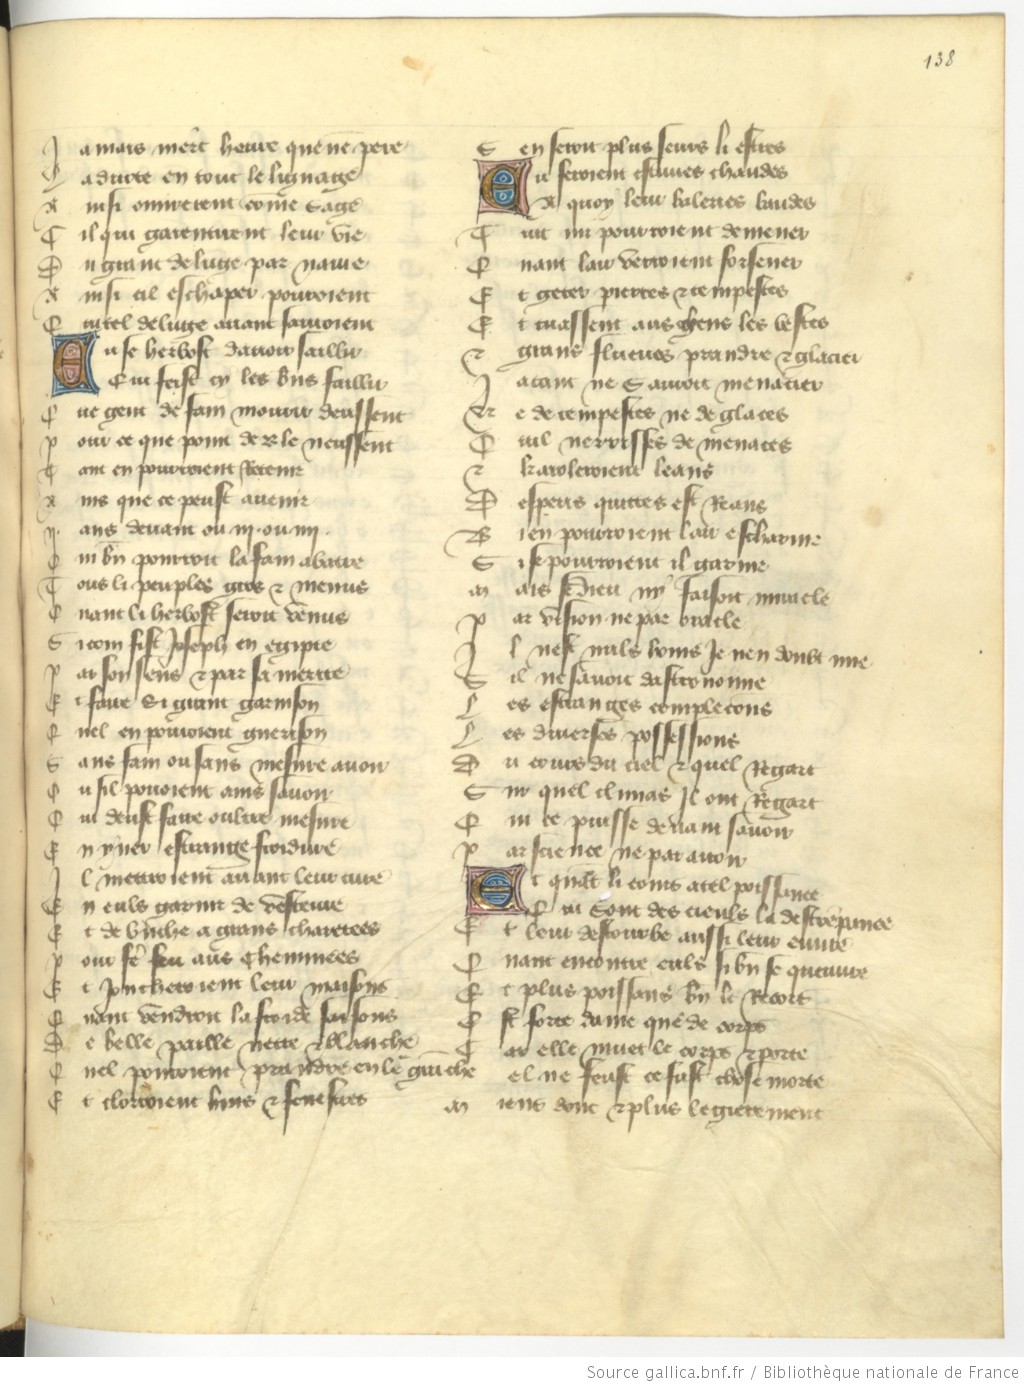 138
J amais mert heure que ne pere
L adurte en tout le lignage
A insi ouvrerent come sage
C il qui garentirent leur vie
D u grant deluge par navie
A insi cil eschaper pourroient
Q ui tel deluge avant savroient
Ou se hervost davoir faillir
Qui feist cy les bns faillir
Q ue gent de fam mourir deussent
P our ce que point de ble neussent
T ant en pourroient retenir
A ins que ce peust avenir
.ij. ans devant ou .iij. ou .iiij.
Q ui bn pourroit la fam abatre
T ous li peuples gros & menus
Q uant li hervost seroit venus
S icom fist Joseph en egipte
P ar son sens & par sa merite
E t faire si grant garnison
Q uel en pouroient guerison
S ans fam ou sans mesure avoir
O u sil povoient ains savoir
Q ui deust faire oultre mesure
E n yver estrange froidure
J l mettroient avant leur cure
E n euls garnir de vesteure
E t de buche a grans charetees
P our fe feu aus cheminees
E t joncheroient leur maisons
Q uant vendroit la froide saisons
D e belle paille nette & blanche
Q uel pouroient prandre en le granche
E t clorroient huis & fenestres
S en seroit plus seurs li estres
Ou feroient estuves chaudes
En quoy leur baleries baudes
T uit nu pourroient demener
Q uant lair verroient forsener
E t geter pierres & tempestes
E t tuassent aus chens les bestes
& grans flueves prandre & glacier
J a tant ne savroit menacier
N e de tempestes ne de glaces
Q uil ne rississes de menaces
& karoleroient leans
D es peris quittes est reans
B ien pourroient lair escharnir
S i se pourroient il garnir
M ais se Dieu ny faisoit miracle
P ar vision ne par oracle
J l nest nuls homs Je nen doubt mie
S il ne savoit dastronomie
L es estranges complecons
L es diverses possessions
D u cours du ciel & quel regart
S ur quel climas Jl ont regart
Q ui ce puisse devant savoir
P ar science ne par avoir
Et quant li corps a tel poissance
Qui sont des cieuls la destrepance
E t leur destourbe aussi leur euvre
Q uant encontre euls si bn se queuvre
E t plus poissans bn le recors
E st force dame que de corps
C ar elle muet le corps & porte
el ne feust ce fust chose morte
M iens dont & plus legierement
Source gallica.bnf.fr / Bibliothèque nationale de France